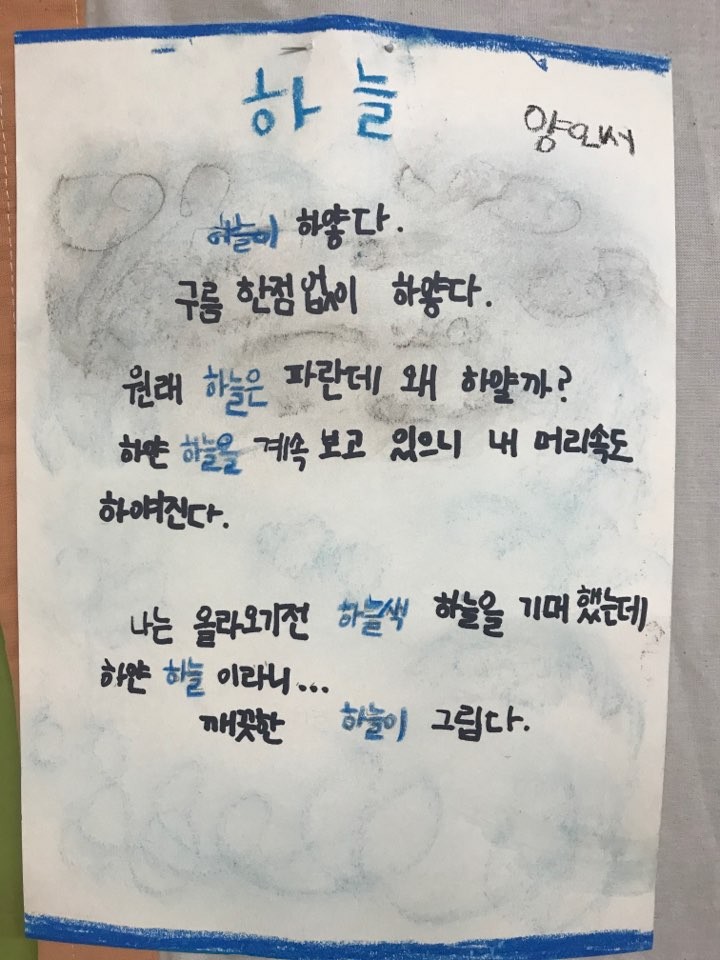 하늘
양인서
하늘이 하얗다.
구름 한점 없이 하얗다.
원래 하늘은 파란데 왜 하얄까?
하얀 하늘을 계속 보고 있으니 내 머리속도
하얘진다.
나는 올라오기전 하늘색 하늘을 기대 했는데
하얀 하늘 이라니...
깨끗한 하늘이 그립다.